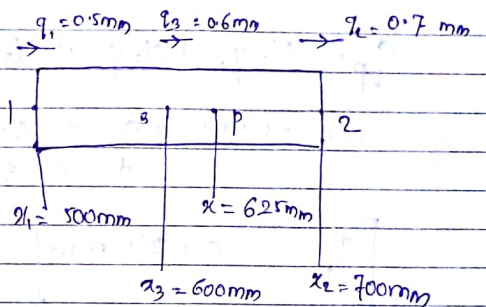 q₁ = 0.5mm q₃ = 0.6mm q₂ = 0.7 mm
1 3 P 2
x₁ = 500mm x = 625mm
x₃ = 600mm x₂ = 700mm